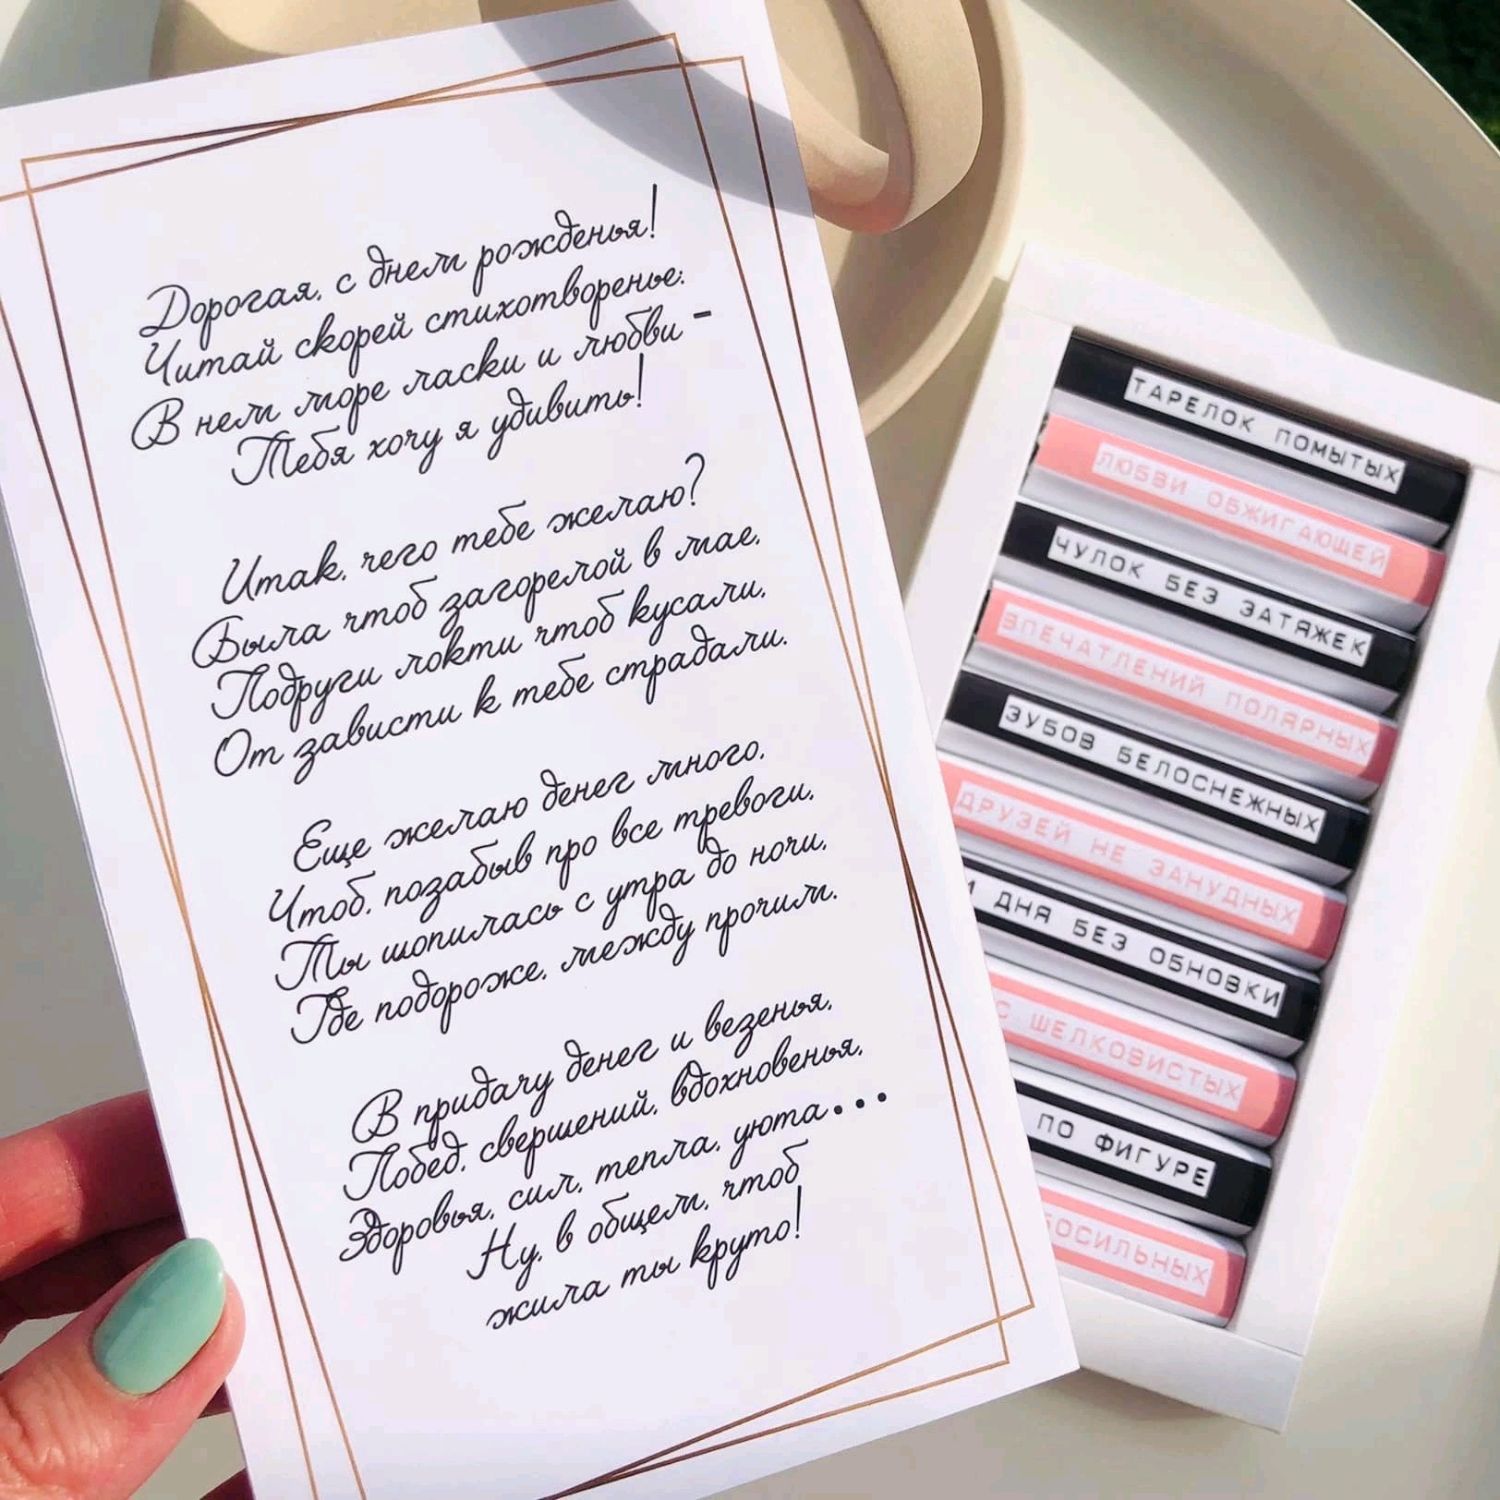 Дорогая, с днем рожденья!
Читай скорей стихотворенье:
В нем море ласки и любви -
Тебя хочу я удивить!
Итак, чего тебе желаю?
Была чтоб загорелой в мае,
Подруги локти чтоб кусали,
От зависти к тебе страдали.
Еще желаю денег много,
Чтоб, позабыв про все тревоги,
Ты шопилась с утра до ночи,
Где подороже, между прочим.
В придачу денег и везенья,
Побед, свершений, вдохновенья,
Здоровья, сил, тепла, уюта...
Ну, в общем, чтоб
жила ты круто!
ТАРЕЛОК ПОМЫТЫХ
ЛЮБВИ ОБЖИГАЮЩЕЙ
ЧУЛОК БЕЗ ЗАТЯЖЕК
ВПЕЧАТЛЕНИЙ ПОЛЯРНЫХ
ЗУБОВ БЕЛОСНЕЖНЫХ
ДРУЗЕЙ НЕ ЗАНУДНЫХ
ДНЯ БЕЗ ОБНОВКИ
ШЕЛКОВИСТЫХ
ПО ФИГУРЕ